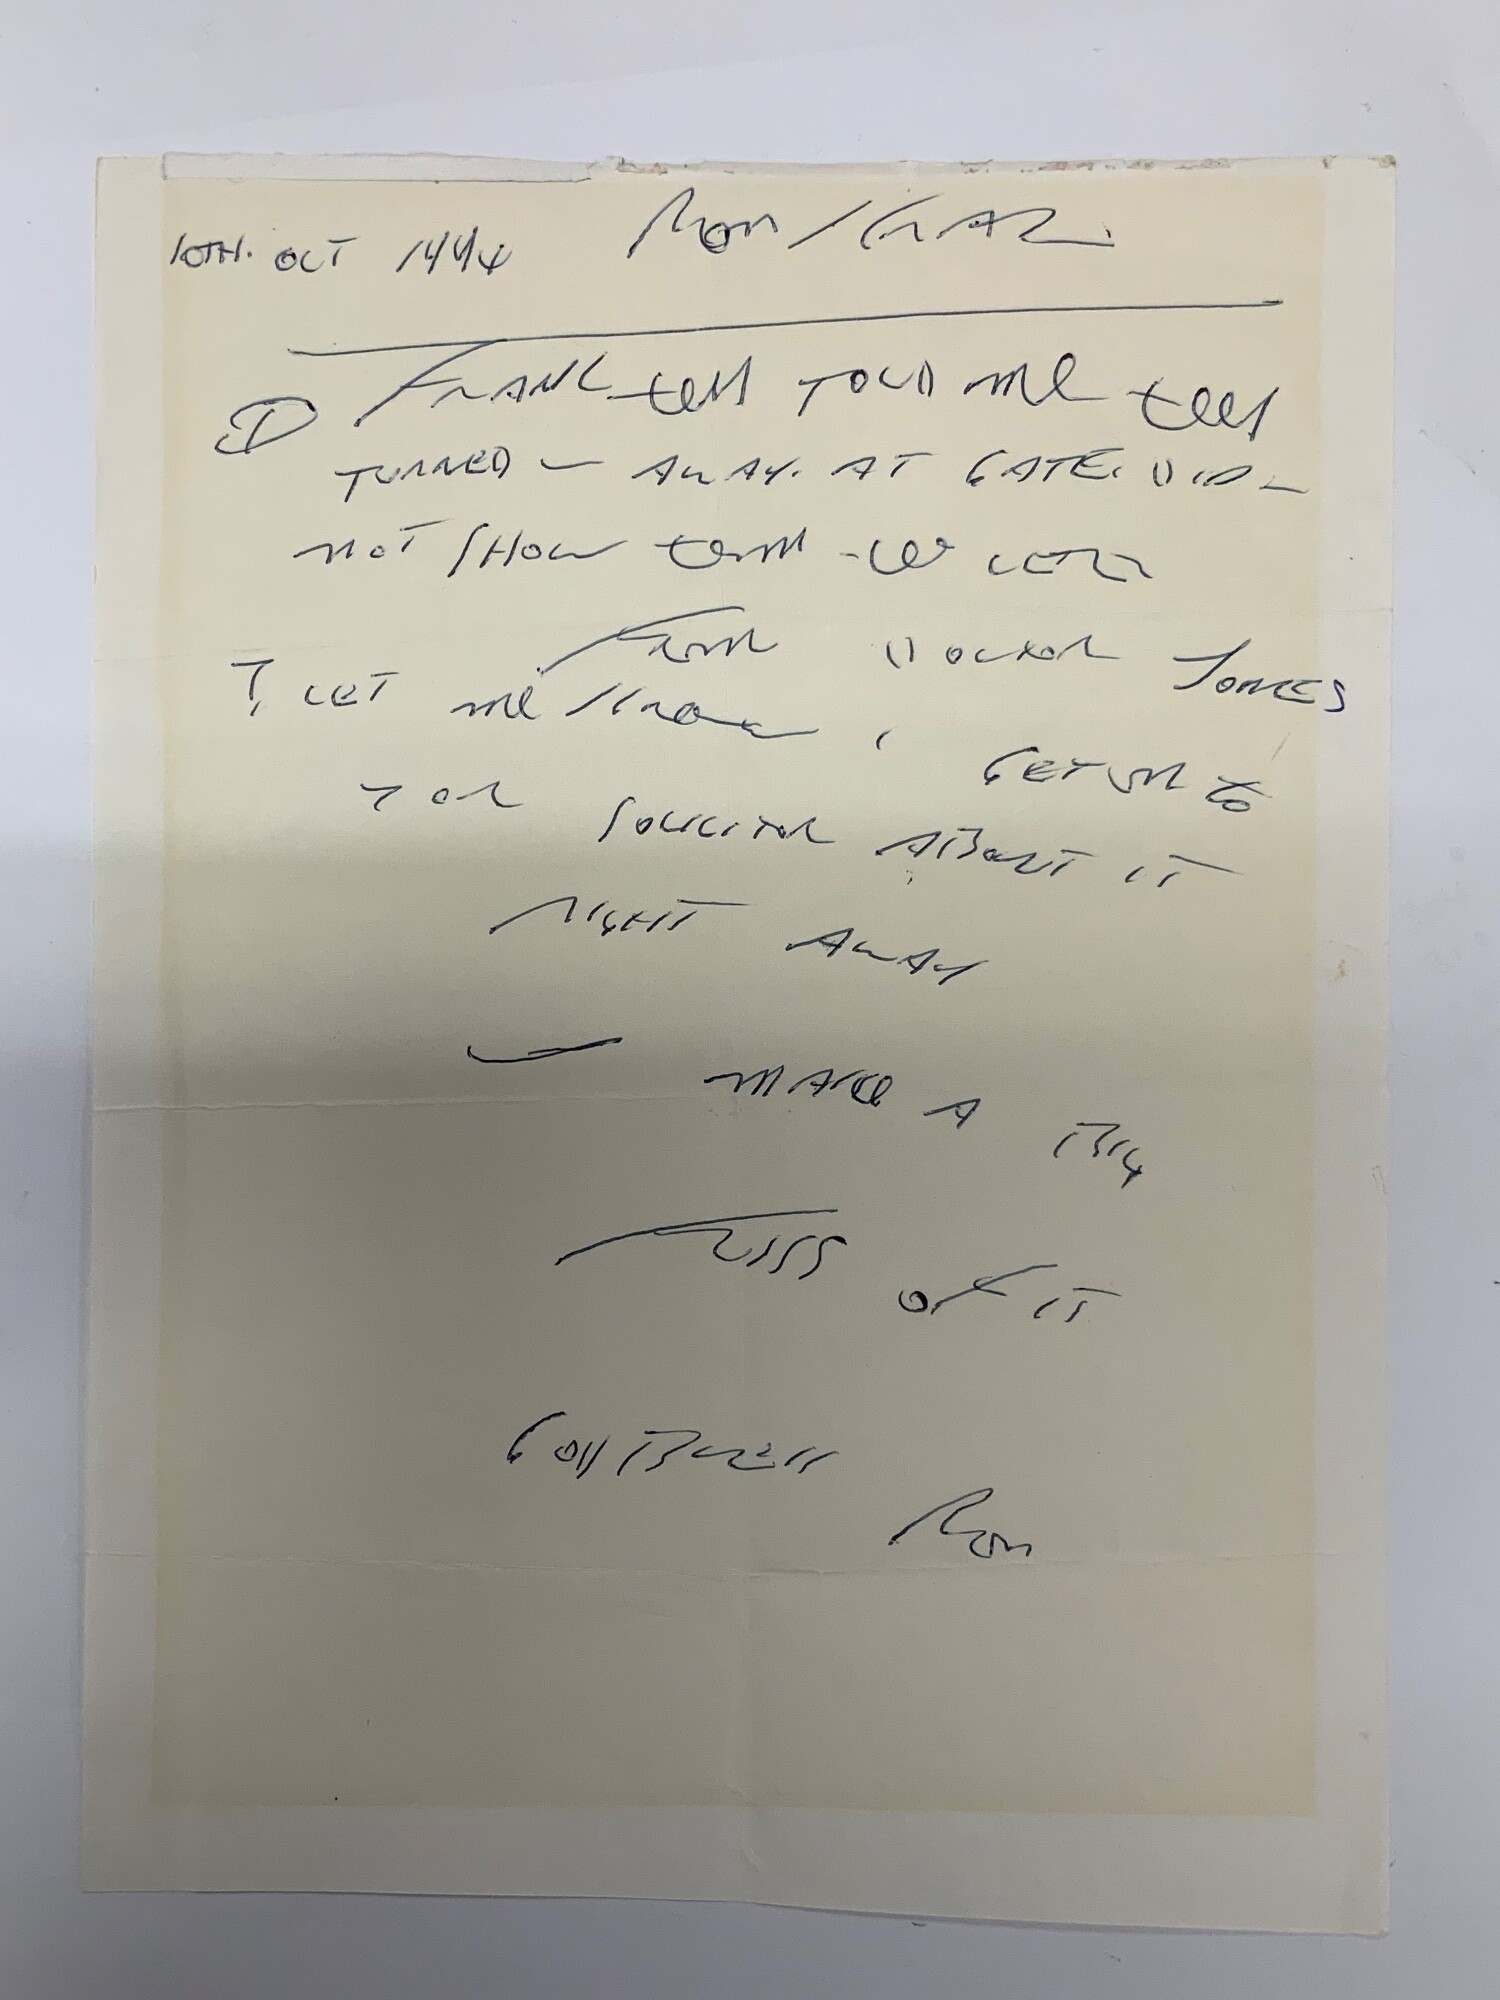 10TH. OCT 1994 RON KRAY
① FRANK TOLD ME
TURNED AWAY. AT GATE. DID
NOT SHOW THEM LETR
FROM DOCTOR JONES
? LET ME KNOW, GET ON TO
YOR SOLICITOR ABOUT IT
RIGHT AWAY
MAKE A BIG
FUSS OF IT
GOD BLESS
RON